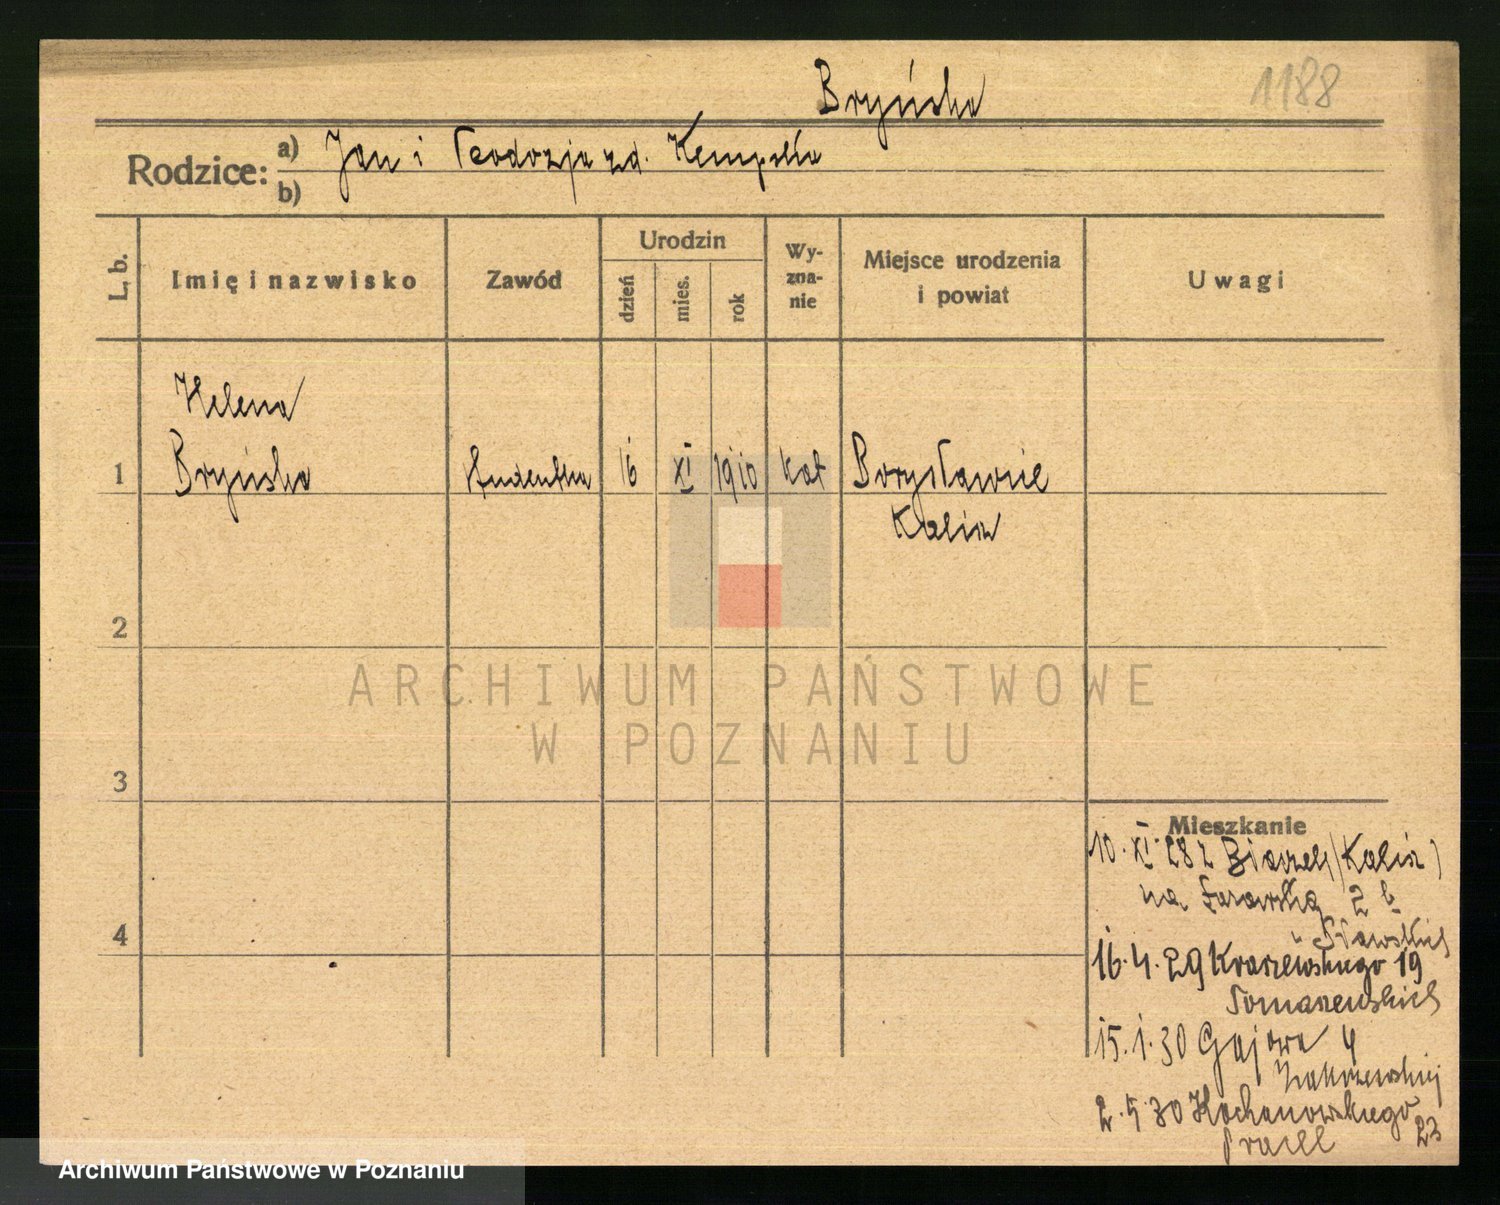 Bryńska
1188
Rodzice: a) Jan i Teodozja zd. Kempska
b)
L. b.
Imię i nazwisko
Zawód
Urodzin
dzień
mies.
rok
Wy-
zna-
nie
Miejsce urodzenia
i powiat
Uwagi
Helena
1 Bryńska Studentka 16 XI 1910 kat Borysławice
Kalisz
2
ARCHIWUM PAŃSTWOWE
W POZNANIU
3
Mieszkanie
10. XI. 28 z (Kalisz)
na 2 b
4
u Sławskich
16. 4. 29 Kraszewskiego 19
Tomaszewskich
15. 1. 30 Gajowa 4
Zakrzewskiej
2. 5. 30 Kochanowskiego
23
Archiwum Państwowe w Poznaniu